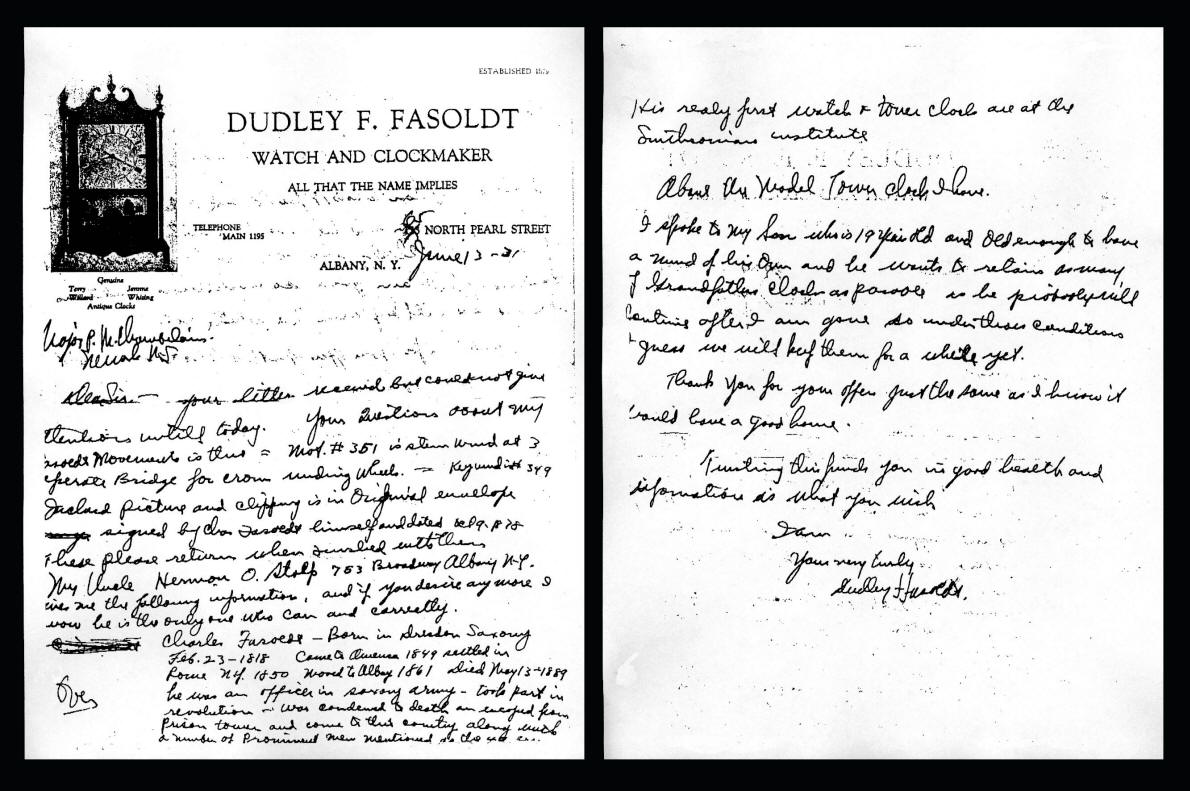 ESTABLISHED 1879
DUDLEY F. FASOLDT
WATCH AND CLOCKMAKER
ALL THAT THE NAME IMPLIES
TELEPHONE
MAIN 1195
65 NORTH PEARL STREET
ALBANY, N. Y. June 13-31
Genuine
Terry Jerome
Willard Whiting
Antique Clocks
Major P. M. Chamberlain.
Newark N.J.
Dear Sir – your letter received but could not give
ttentions untill today. Your Questions about my
asoldt Movements is this = Mov. # 351 is stem wind at 3
eperate Bridge for crown winding wheels. – Keywind # 349
Inclosed picture and clipping is in Original envelope
signed by Chas Fasoldt himself and dated
These please return when finished with them
My Uncle Hermon O. Stolp 753 Broadway Albany N.Y.
ives me the following information, and if you desire any more I
now he is the only one who can and correctly.
Charles Fasoldt – Born in Dresdon Saxony
Feb. 23-1818 Came to America 1849 settled in
Rome N.Y. 1850 Moved to Albany 1861 died May 13-1889
he was an officer in saxony army – took part in
revolution – was condemed to death an escaped from
Prison tower and come to this country along with
a number of Prominent men mentioned in the
Over
His realy first watch & tower clock are at the
Smithsonian institute
About the Model Tower clock I have.
I spoke to my Son who is 19 year old and old enough to have
a mind of his Own and he wants to retain as many
of Grandfathers clocks as possible so he probobly will
continue after I am gone so under those conditions
I guess we will keep them for a while yet.
Thank you for your offer just the same as I know it
would have a good home.
Trusting this finds you in good health and
information is what you wish
I am
Yours very truly
Dudley F Fasoldt.